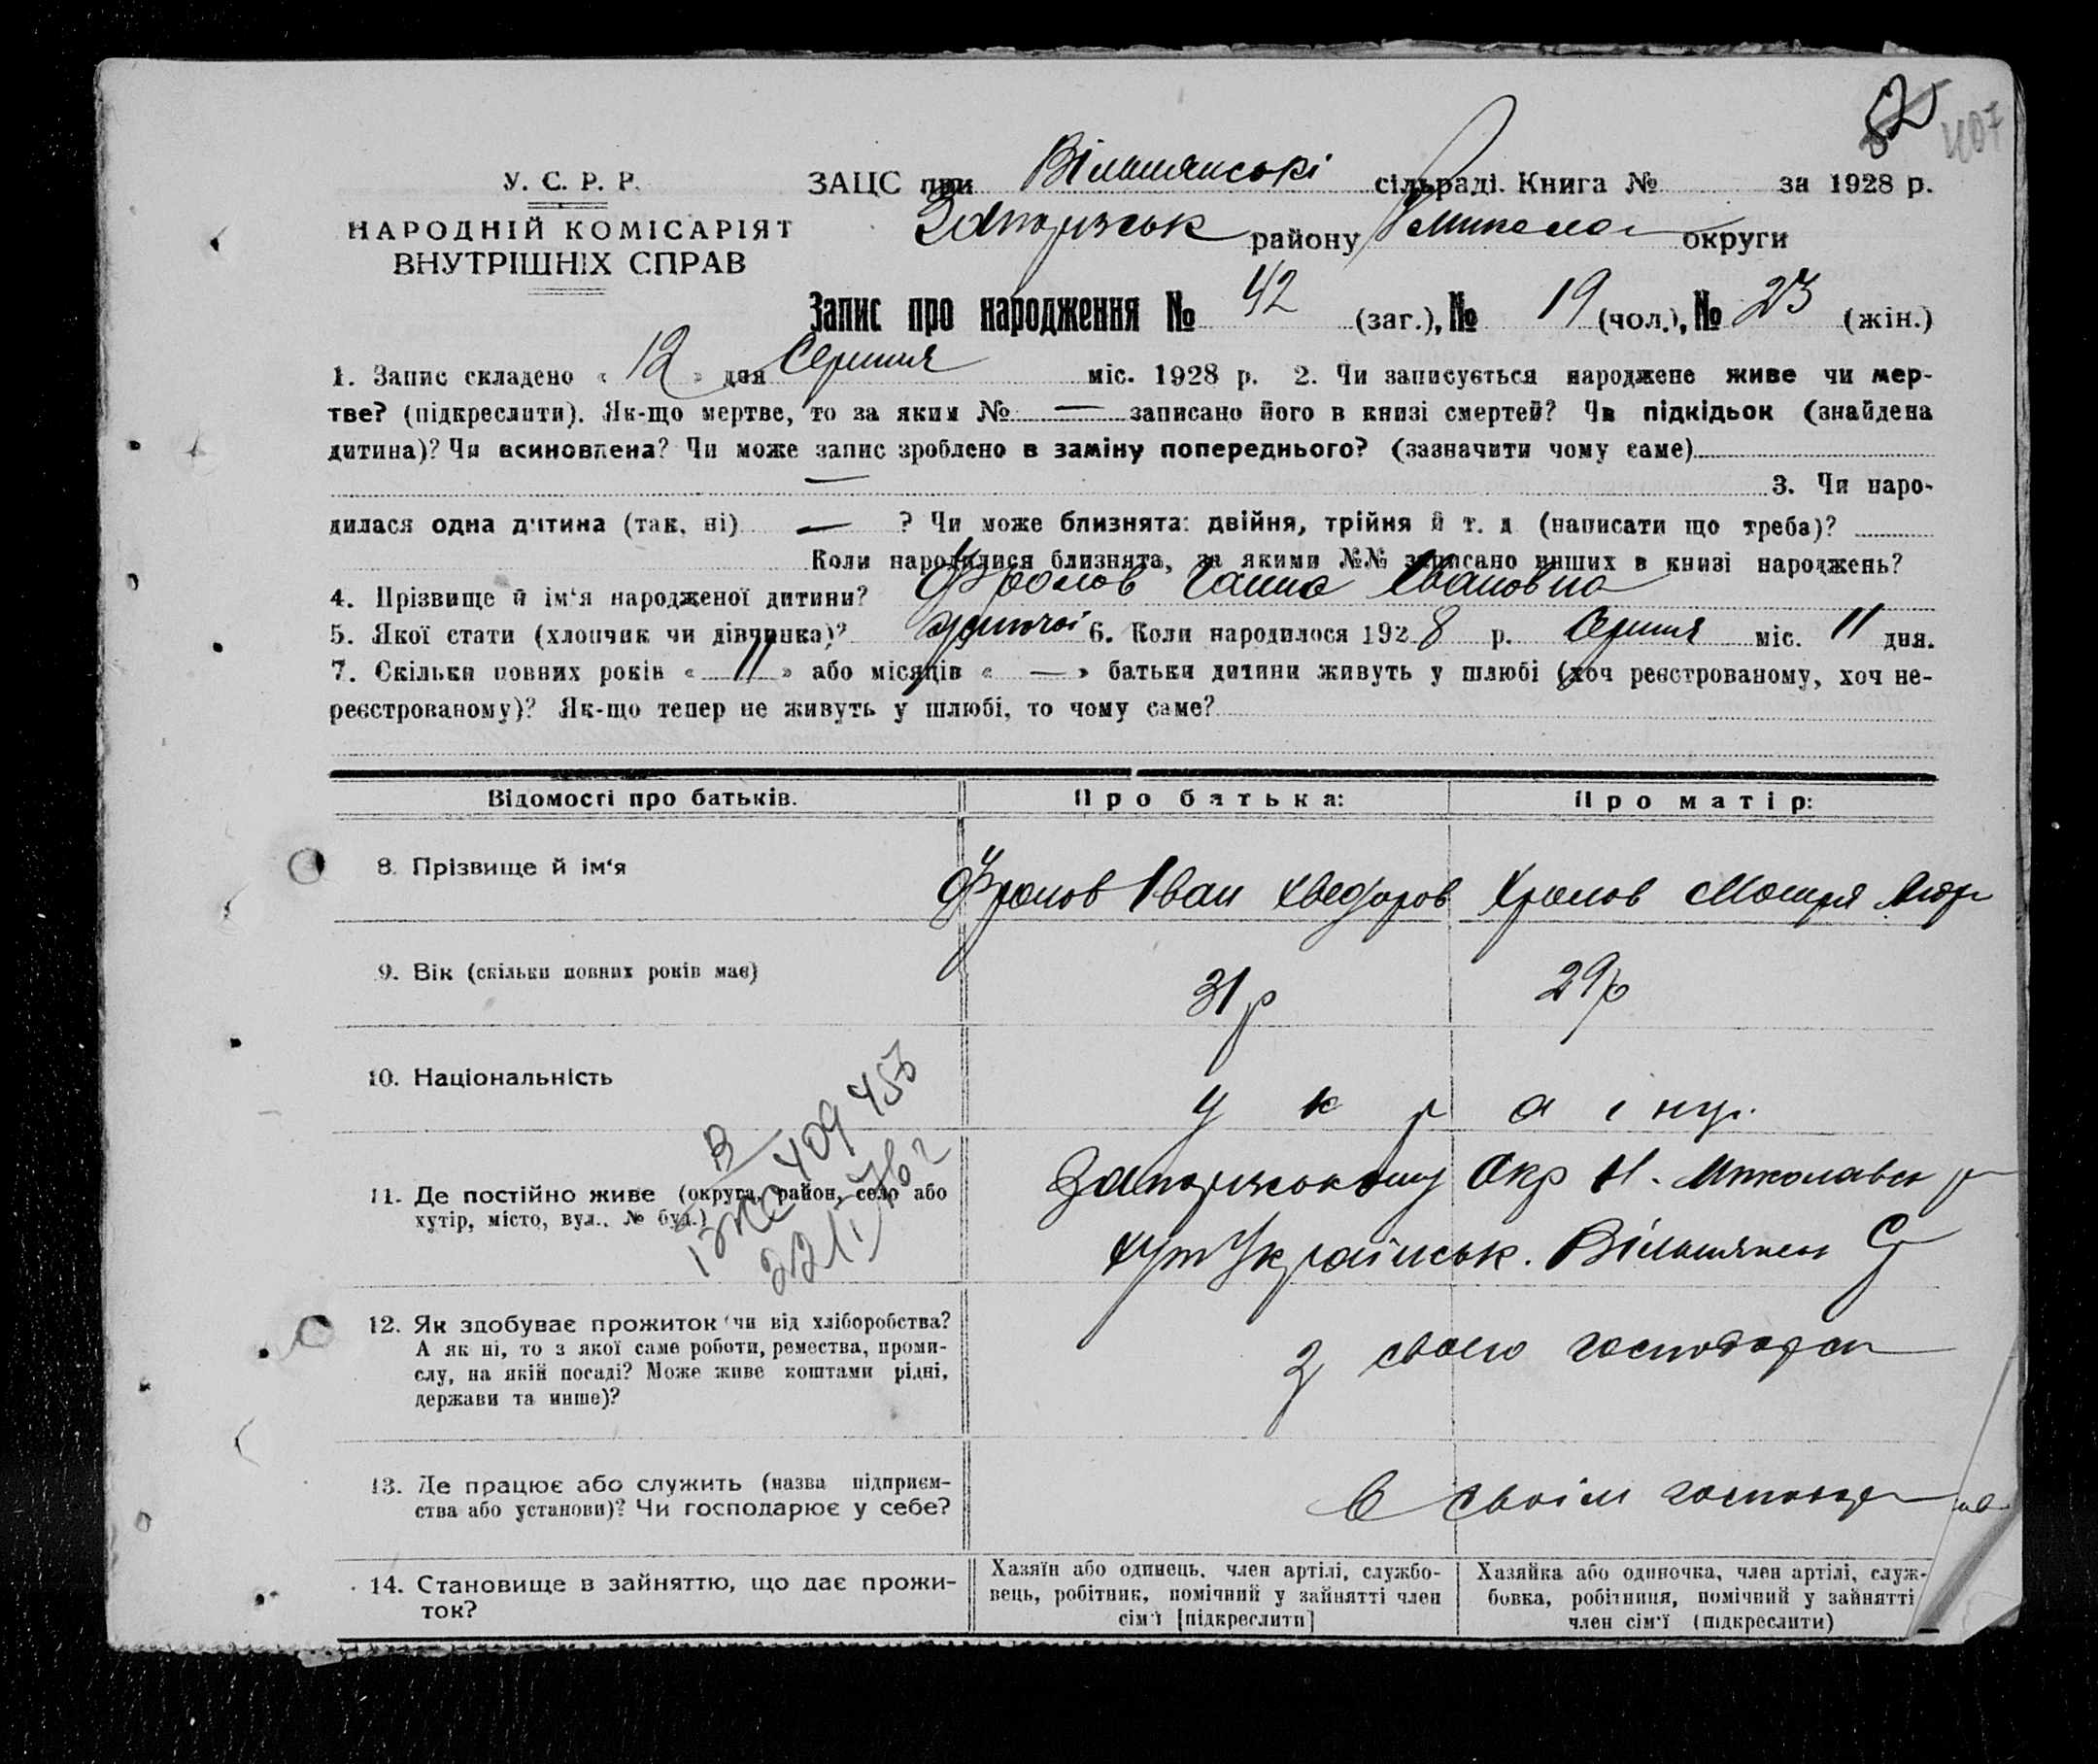 82 407
У. С. Р. Р. ЗАЦС при Вільшанські сільраді. Книга № за 1928 р.
НАРОДНІЙ КОМІСАРІЯТ Запорізськ району Микола округи
ВНУТРІШНІХ СПРАВ
Запис про народження № 42 (заг.), № 19 (чол.), № 23 (жін.)
1. Запис складено « 12 » дня Серпня міс. 1928 р. 2. Чи записується народжене живе чи мер-
тве? (підкреслити). Як-що мертве, то за яким № — записано його в книзі смертей? Чи підкідьок (знайдена
дитина)? Чи всиновлена? Чи може запис зроблено в заміну попереднього? (зазначити чому саме)
— 3. Чи наро-
дилася одна дитина (так, ні) — ? Чи може близнята: двійня, трійня й т. д (написати що треба)?
Коли народилися близнята, за якими №№ записано инших в книзі народжень?
4. Прізвище й ім‘я народженої дитини? Фролов Ганна Івановна
5. Якої стати (хлопчик чи дівчинка)? 6. Коли народилося 1928 р. Серпня міс. 11 дня.
7. Скільки повних років « 11 » або місяців « — » батьки дитини живуть у шлюбі (хоч реєстрованому, хоч не-
реєстрованому)? Як-що тепер не живуть у шлюбі, то чому саме?
Відомості про батьків. Про батька: Про матір:
8. Прізвище й ім‘я Фролов Іван Хведоров Хролов Мотря
9. Вік (скільки повних років має) 31 р 29 р
10. Національність у к р а їнц.
11. Де постійно живе (округа, район, село або
хутір, місто, вул., № буд.)
Запорізському Окр Н. Миколавськ р
хут Українськ. Вільшанськ С
409 453
12. Як здобуває прожиток (чи від хліборобства?
А як ні, то з якої саме роботи, ремества, проми-
слу, на якій посаді? Може живе коштами рідні,
держави та инше)?
З свого господарст
13. Де працює або служить (назва підприєм-
ства або установи)? Чи господарює у себе?
В своїм
14. Становище в зайняттю, що дає прожи-
ток?
Хазяїн або одинець, член артілі, службо-
вець, робітник, помічний у зайнятті член
сім‘ї [підкреслити]
Хазяйка або одиночка, член артілі, служ-
бовка, робітниця, помічний у зайнятті
член сім‘ї (підкреслити)